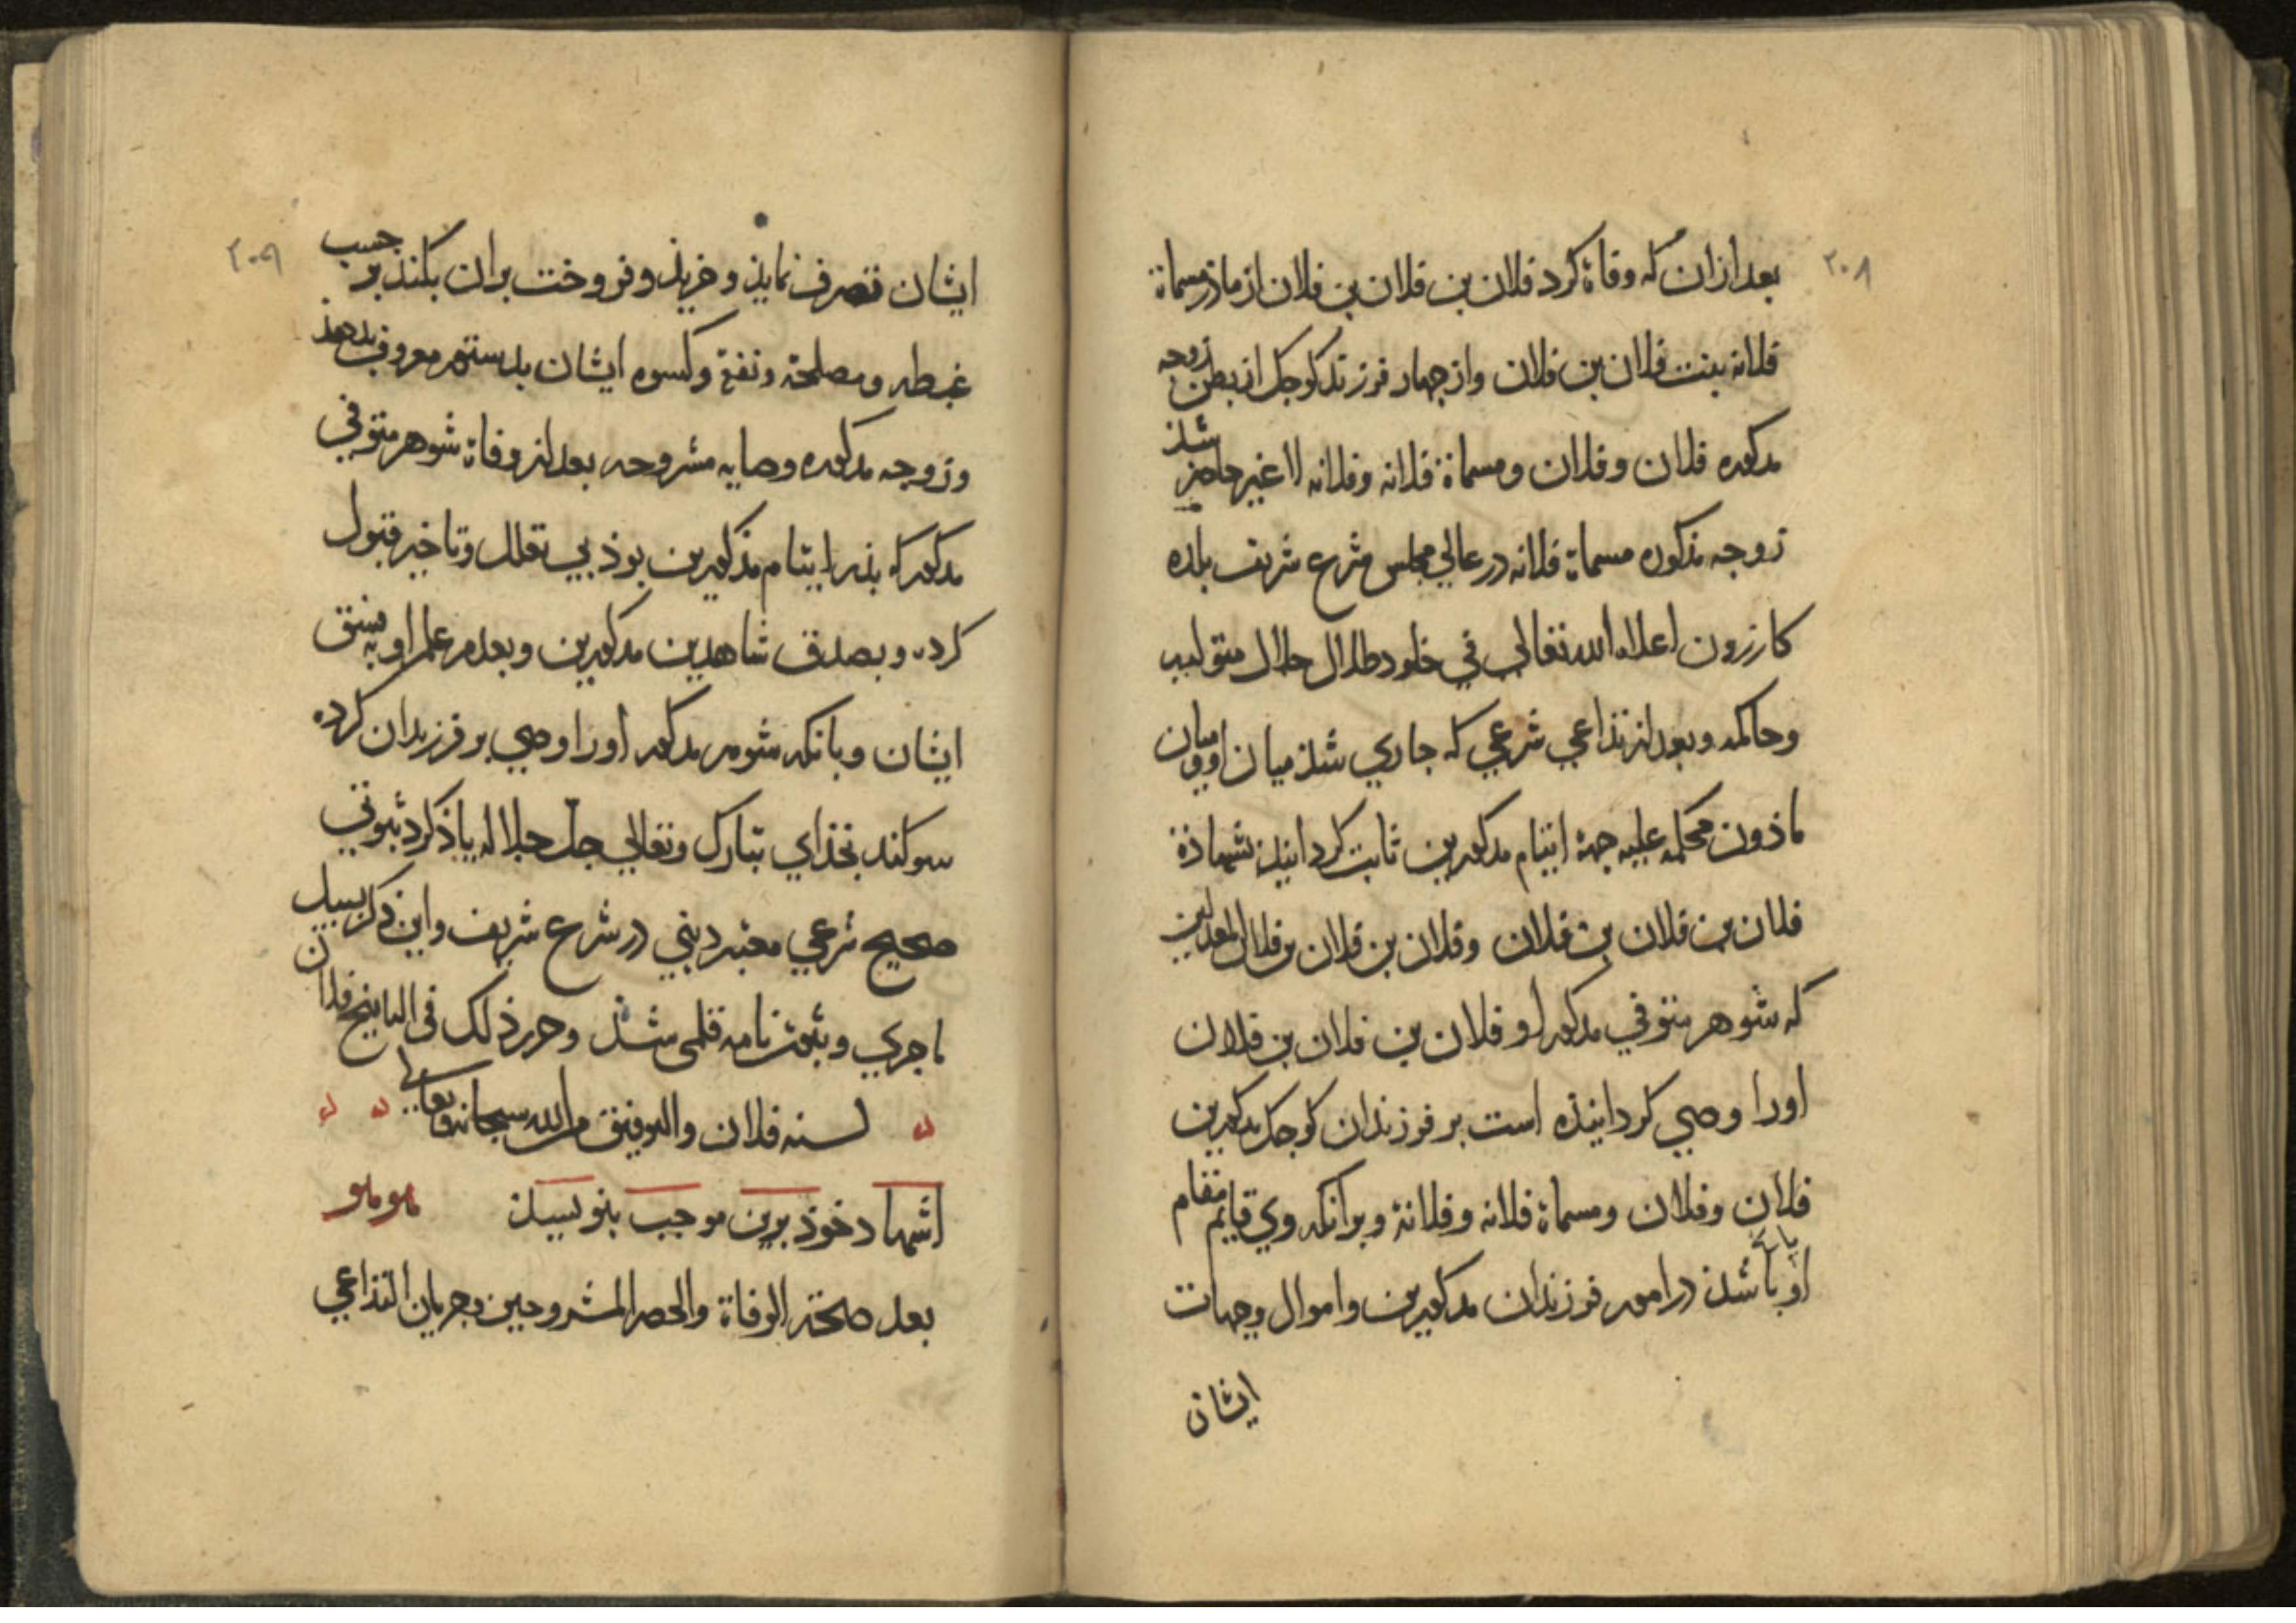 ٢٠٨
بعد ازان که وفاة کرد فلان بن فلان بن فلان از مادر مسماة
فلانه بنت فلان بن فلان واز چهار فرزند کوجک از بطن زوجه
مذکوره فلان وفلان ومسماة فلانه وفلانه لا غیر حاضر شذ
زوجه مذکوره مسماة فلانه در عالي مجلس شرع شریف بلده
کازرون اعلاه الله تعالی في خلود ظلال جلال متولیه
وحاکمه وبعد از تداعي شرعي که جاري شذ میان او ومیان
ماذون محکمه علیه جهة ایتام مذکورین ثابت کردانیذ بشهاذة
فلان بن فلان بن فلان وفلان بن فلان بن فلان المعدلین
که شوهر متوفي مذکور او فلان بن فلان بن فلان
اورا وصي کردانیذه است بر فرزندان کوجک مذکورین
فلان وفلان ومسماة فلانه وفلانة وبرانکه وي قایم مقام
او باشذ در امور فرزندان مذکورین واموال وجهات
ایشان
٢٠٩
ایشان تصرف نمایذ وخریذ وفروخت بران بکنذ بر حسب
غبطه ومصلحة ونفقة وکسوه ایشان بدستور معروف بدهذ
وزوجه مذکوره وصایه مشروحه بعد از وفاة شوهر متوفي
مذکور که بذر ایتام مذکورین بوذ بي تعلل وتاخیر قبول
کرده وبصدق شاهدین مذکورین وبعدم علم او به فسق
ایشان وبانکه شوهر مذکور اورا وصي بر فرزندان کرده
سوکند بخذاي تبارک وتعالي جل جلاله یاذ کرد ثبوتي
صحیح شرعي معتبر دیني در شرع شریف واین ذکر بسبیل
ماجري وثبوت نامه قلمی شذ وحرر ذلک في التاریخ فلان
لسنه فلان والتوفیق من الله سبحانه وتعالی
اشهاد خوذ برین موجب بنویسذ
بعد صحة الوفاة والحصر المشروحین وجریان التداعي